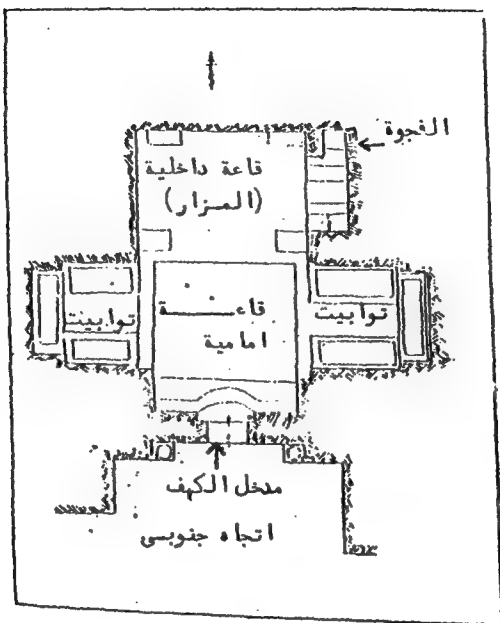 الفجوة
قاعة داخلية
(المزار)
توابيت
قاعة
امامية
توابينت
مدخل الكهف
اتجاه جنوبي